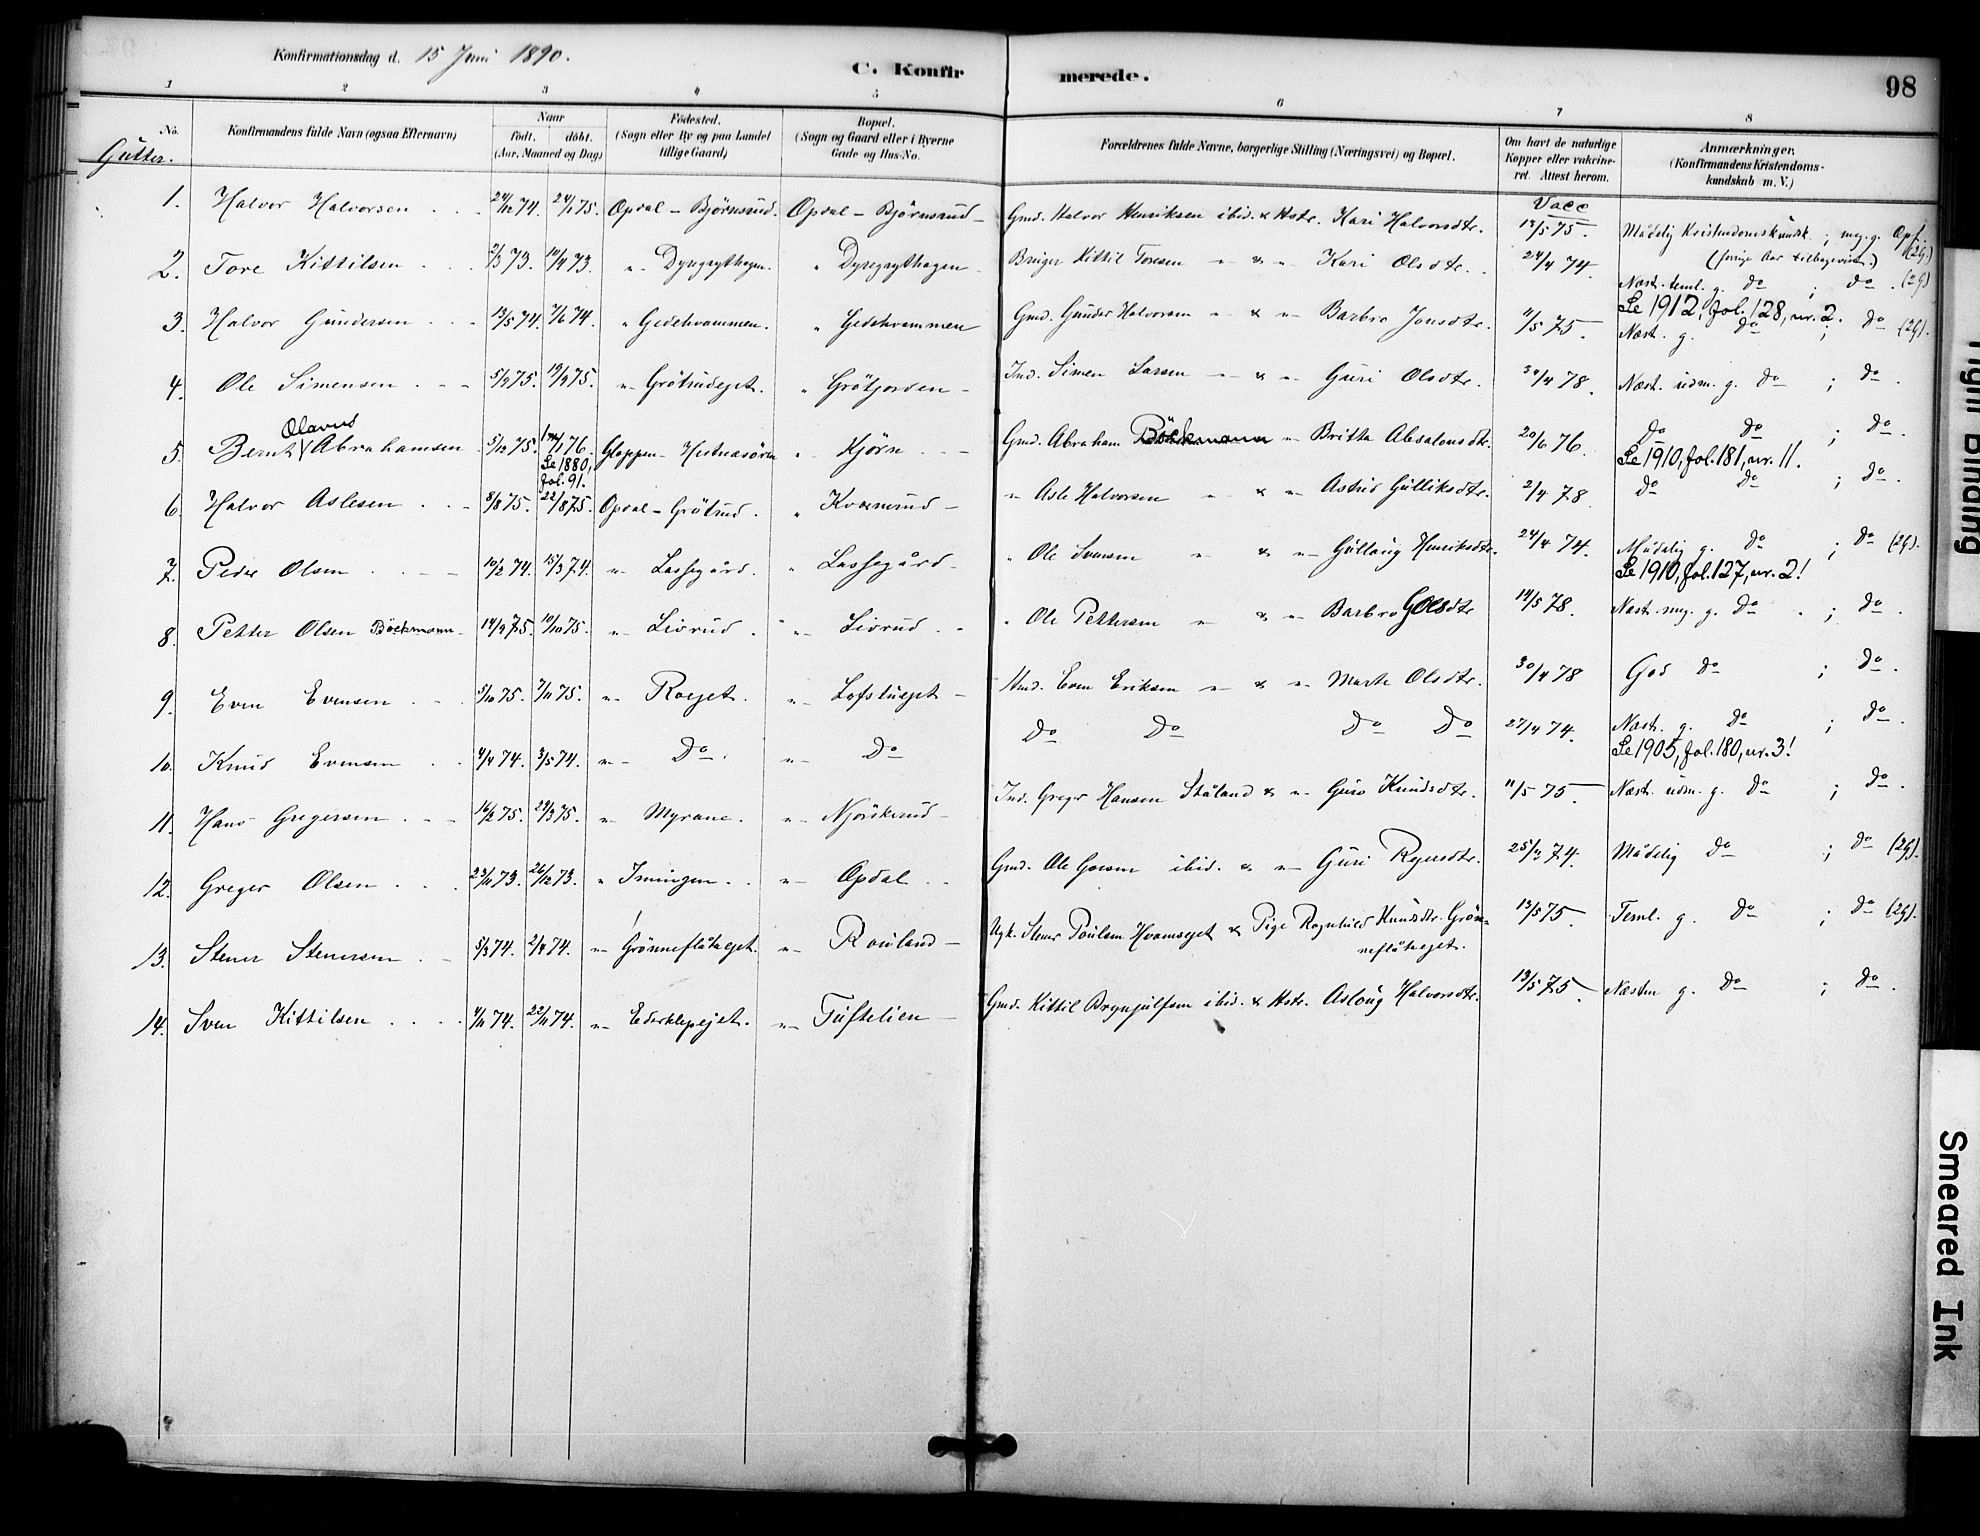 Konfirmationsdag d. 15 Juni 1890.
C. Konfir merede.
98
1 2 3 4 5 6 7 8
No. Konfirmandens fulde Navn (ogsaa Efternavn)
Naar
født. døbt.
(Aar, Maaned og Dag)
Fødested.
(Sogn eller By og paa Landet
tillige Gaard)
Bopæl.
(Sogn og Gaard eller i Byerne
Gade og Hus-No.
Forældrenes fulde Navne, borgerlige Stilling (Næringsvei) og Bopæl.
Om havt de naturlige
Kopper eller vakcine-
ret. Attest herom.
Anmærkninger.
(Konfirmandens Kristendoms-
kundskab m. V.)
Gutter.
Vacc
1. Halvor Halvorsen 24/12 74. 24/1 75. Opdal - Björnsrud. Opdal - Björnsrud - Gmd. Halvor Henriksen ibid. & Hstr. Kari Halvorsdtr. 13/5 75. Mådelig Kristendomskundsk. ; meg. g. Opf. (2G.)
(forrige Aar tilbagevist.)
2. Tore Kittilsen 2/3 73. 14/4 73. " Dyrgrythagen. " Dyrgrythagen - Bruger Kittil Toresen " & " Kari Olsdtr. 24/4 74. Næst. teml. g. do ; do. (2G)
Se 1912, fol. 128, nr. 2.
3. Halvor Gundersen 13/5 74. 7/6 74. " Gedehvammen. " Gedehvammen Gmd. Gunder Halvorsen " & " Barbro Jonsdtr. 11/5 75. Næst. g. do ; do (2G).
4. Ole Simensen 5/2 75. 19/3 75. " Grötrudeget. " Grötjorden - Ind. Simen Larsen " & " Guri Olsdtr. 30/4 78. Næst. udm. g. do ; do.
Olavus
5. Bernt Abrahamsen 5/12 75. 1/1 76. Gloppen - Hetnasören " Kjörn Gmd. Abraham Böckmann " Britta Absalonsdtr. 20/6 76. do do ; do.
Se 1880, fol. 91.
Se 1910, fol. 181, nr. 11.
6. Halvor Aslesen 8/8 75. 22/8 75. Opdal - Grötrud. " Kværnrud - " Asle Halvorsen " & " Astrid Gulliksdtr. 2/4 78. do do ; do.
7. Peder Olsen 10/2 74. 15/3 74. " Lassegård. " Lassegård - " Ole Svensen " & " Gullaug Henriksdtr. 24/4 74. Mådelig g. do ; do (2G).
Se 1910, fol. 127, nr. 2!
8. Petter Olsen Böckmann 14/9 75. 10/10 75. " Livrud. " Livrud. " Ole Pettersen " & " Barbro Golsdtr 14/5 78. Næst. meg. g. do. ; do.
9. Even Evensen 5/10 75. 7/11 75. " Roeget. " Loftsueget - Hmd. Even Eriksen " & " Marte Olsdtr. 30/4 78 God do ; do.
10. Knud Evensen 4/4 74. 3/5 74. " Do. " Do Do Do Do Do 27/4 74. Næst. g. do ; do.
Se 1905, fol. 180, nr. 3!
11. Hans Gregersen 16/2 75. 29/3 75. " Myrane. " Njöskerud - Ind. Greger Hansen Ståland & " Guro Knudsdtr. 11/5 75. Næst. udm. g. do ; do.
12. Greger Olsen 23/11 73. 26/12 73. " Imingen. " Opdal Gmd. Ole Goesen ibid. & " Guri Ryersdtr. 25/3 74. Mådelig do ; do (2G).
13. Stener Stenersen 5/3 74. 2/4 74. " Grönneflåteget. " Rouland - Ugk. Stener Poulsen Hvamseget & Pige Ragnhild Knudsdtr. Grön=
neflåteget. 13/5 75 Teml. g. do ; do (2G).
14. Sven Kittilsen 4/11 74. 22/11 74. " Ederklepejet. " Tuftelien - Gmd. Kittil Brynjulfsen ibid. & Hstr. Aslaug Halvorsdtr. 13/5 75. Næsten g. do ; do.
Tight Binding
Smeared Ink